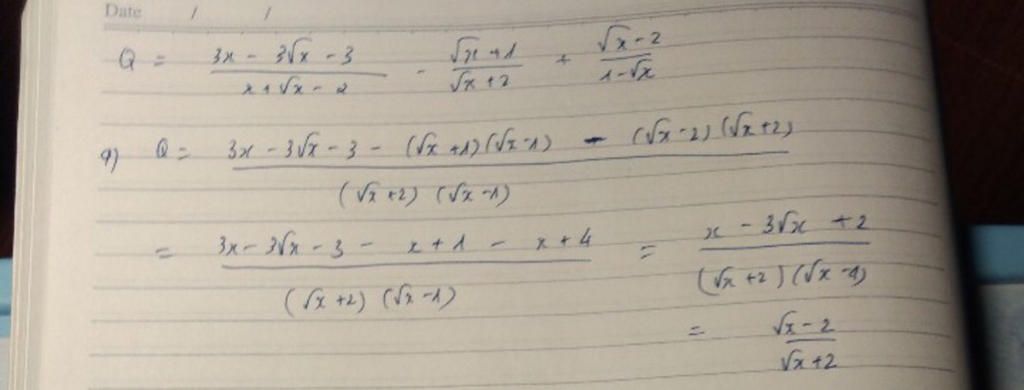 Date / /
Q = \frac{3x - 3\sqrt{x} - 3}{x + \sqrt{x} - 2} - \frac{\sqrt{x} + 1}{\sqrt{x} + 2} + \frac{\sqrt{x} - 2}{1 - \sqrt{x}}
a) Q = \frac{3x - 3\sqrt{x} - 3 - (\sqrt{x} + 1)(\sqrt{x} - 1) - (\sqrt{x} - 2)(\sqrt{x} + 2)}{(\sqrt{x} + 2)(\sqrt{x} - 1)}
= \frac{3x - 3\sqrt{x} - 3 - x + 1 - x + 4}{(\sqrt{x} + 2)(\sqrt{x} - 1)} = \frac{x - 3\sqrt{x} + 2}{(\sqrt{x} + 2)(\sqrt{x} - 1)}
= \frac{\sqrt{x} - 2}{\sqrt{x} + 2}